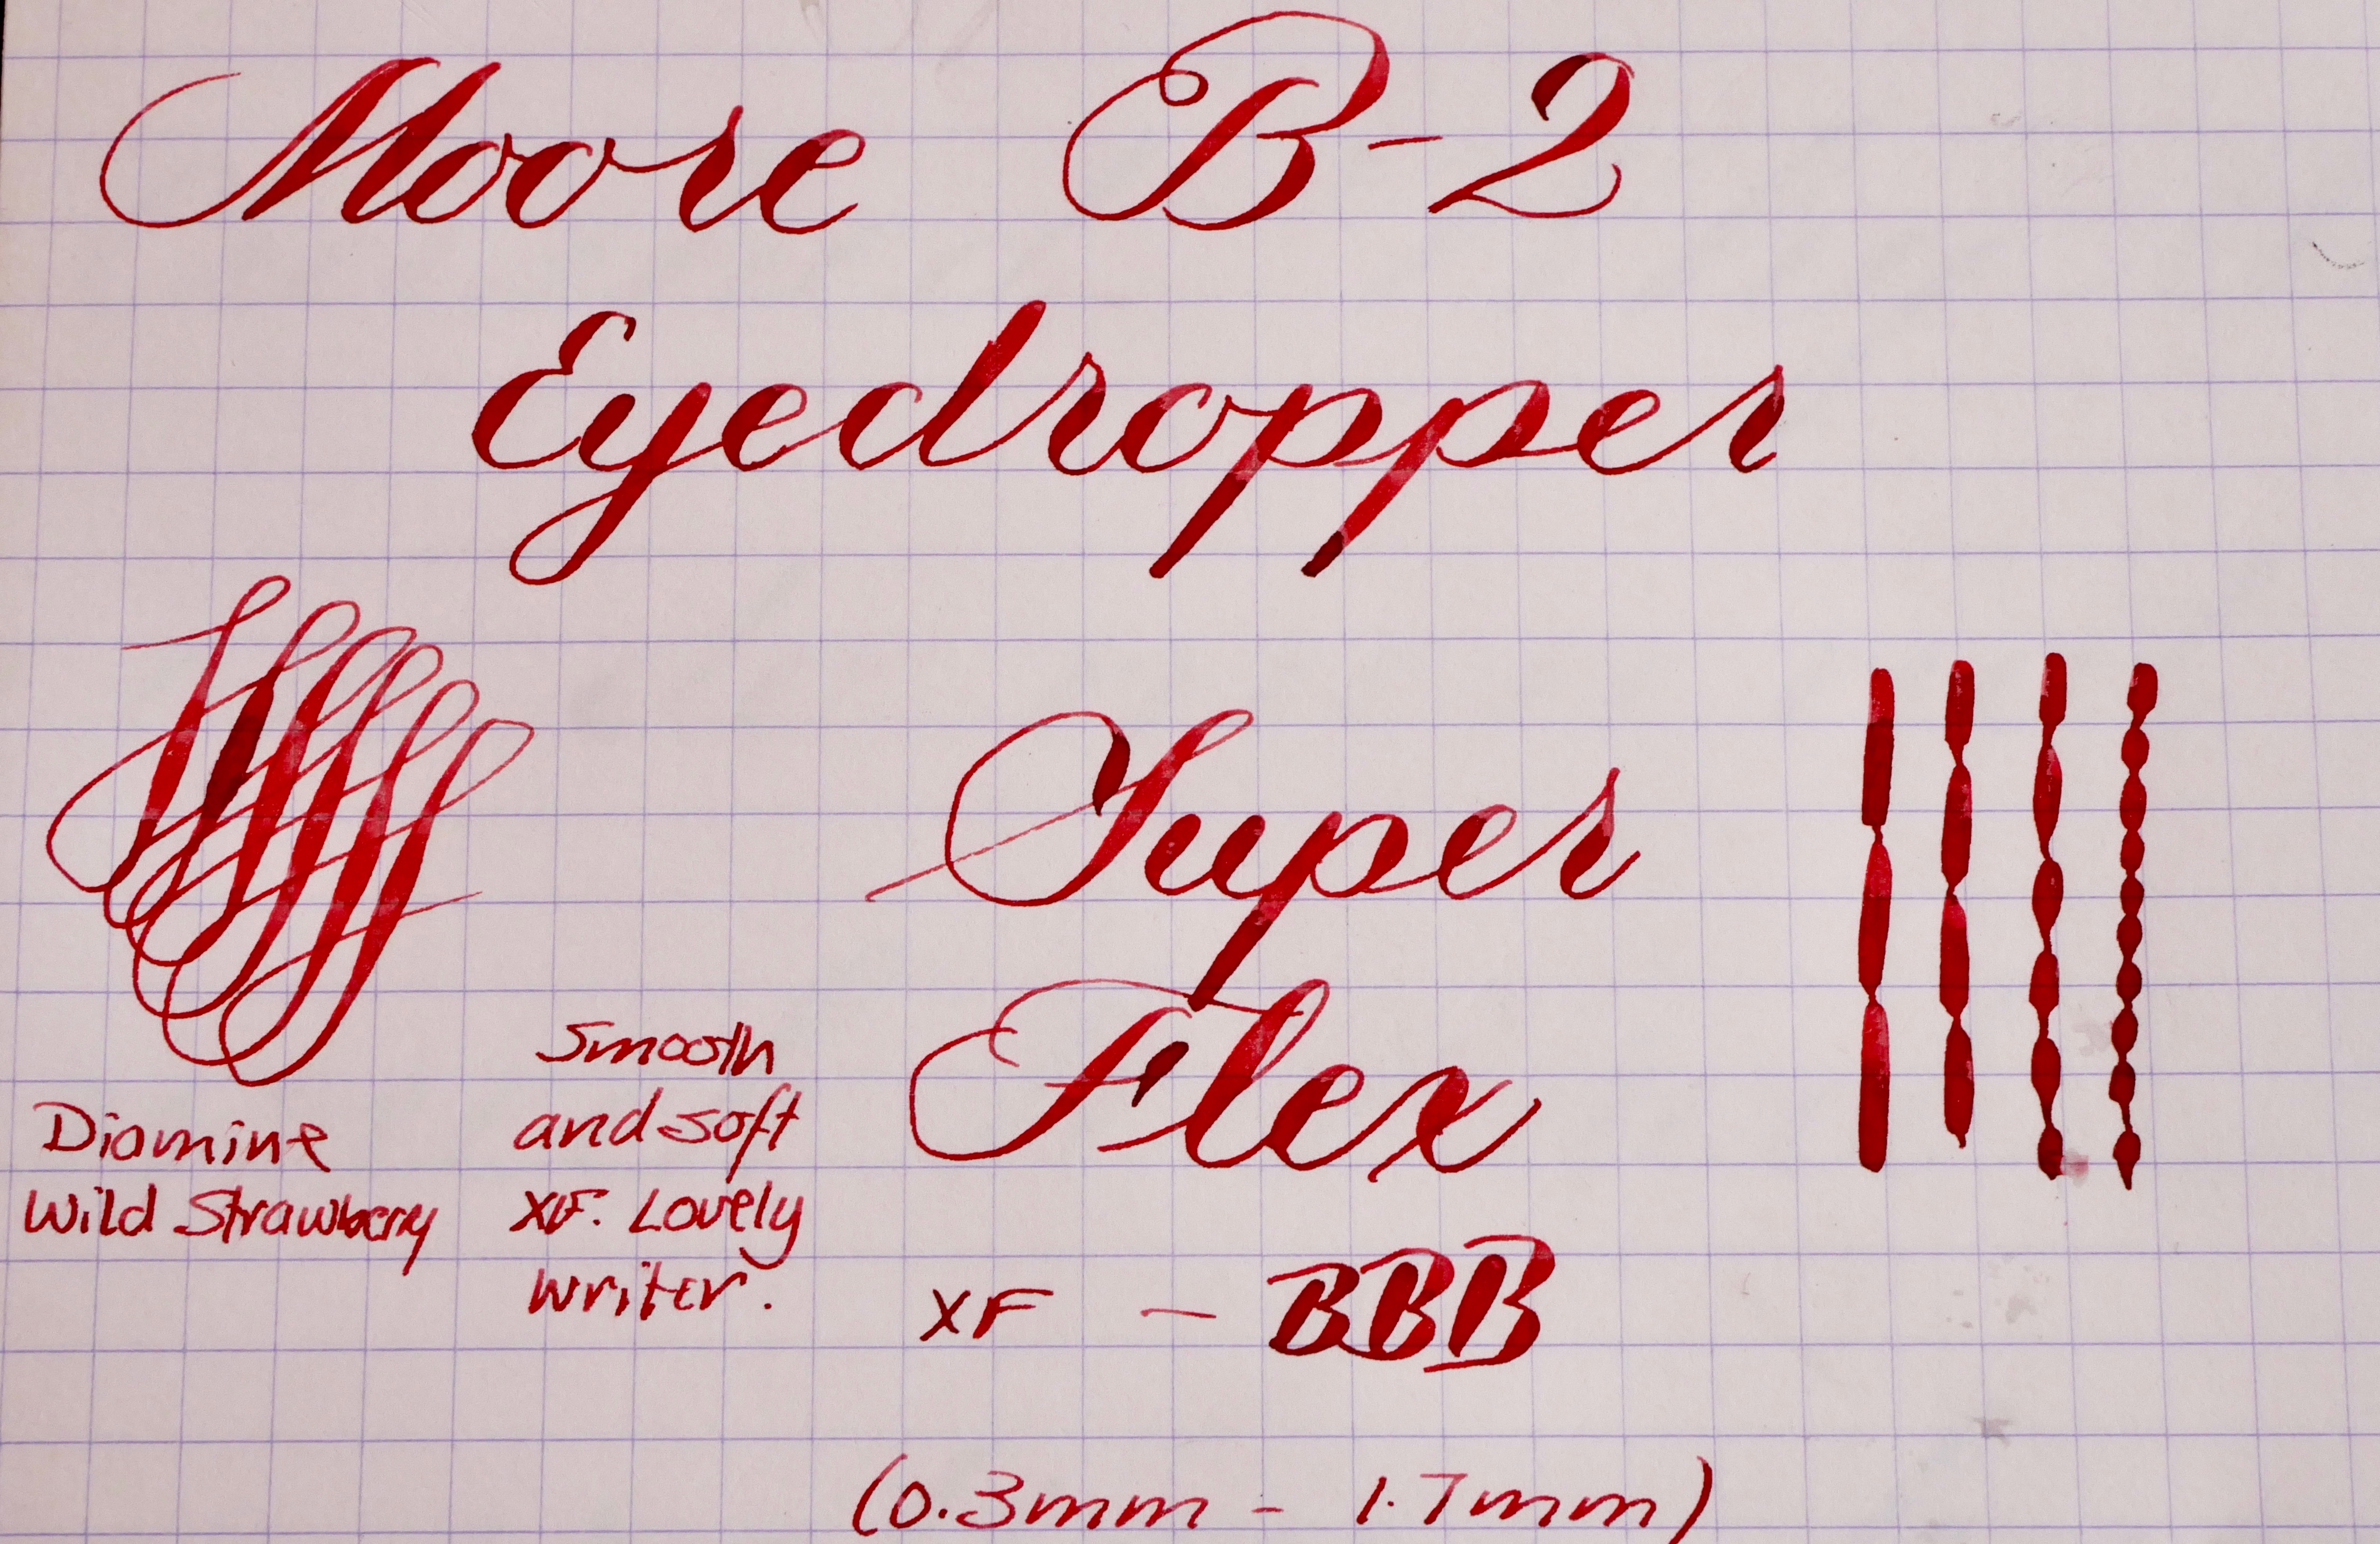 Moore B-2
Eyedropper
Super
Flex
XF - BBB
(0.3mm - 1.7mm)
Smooth
and soft
XF. Lovely
writer.
Diamine
Wild Strawberry